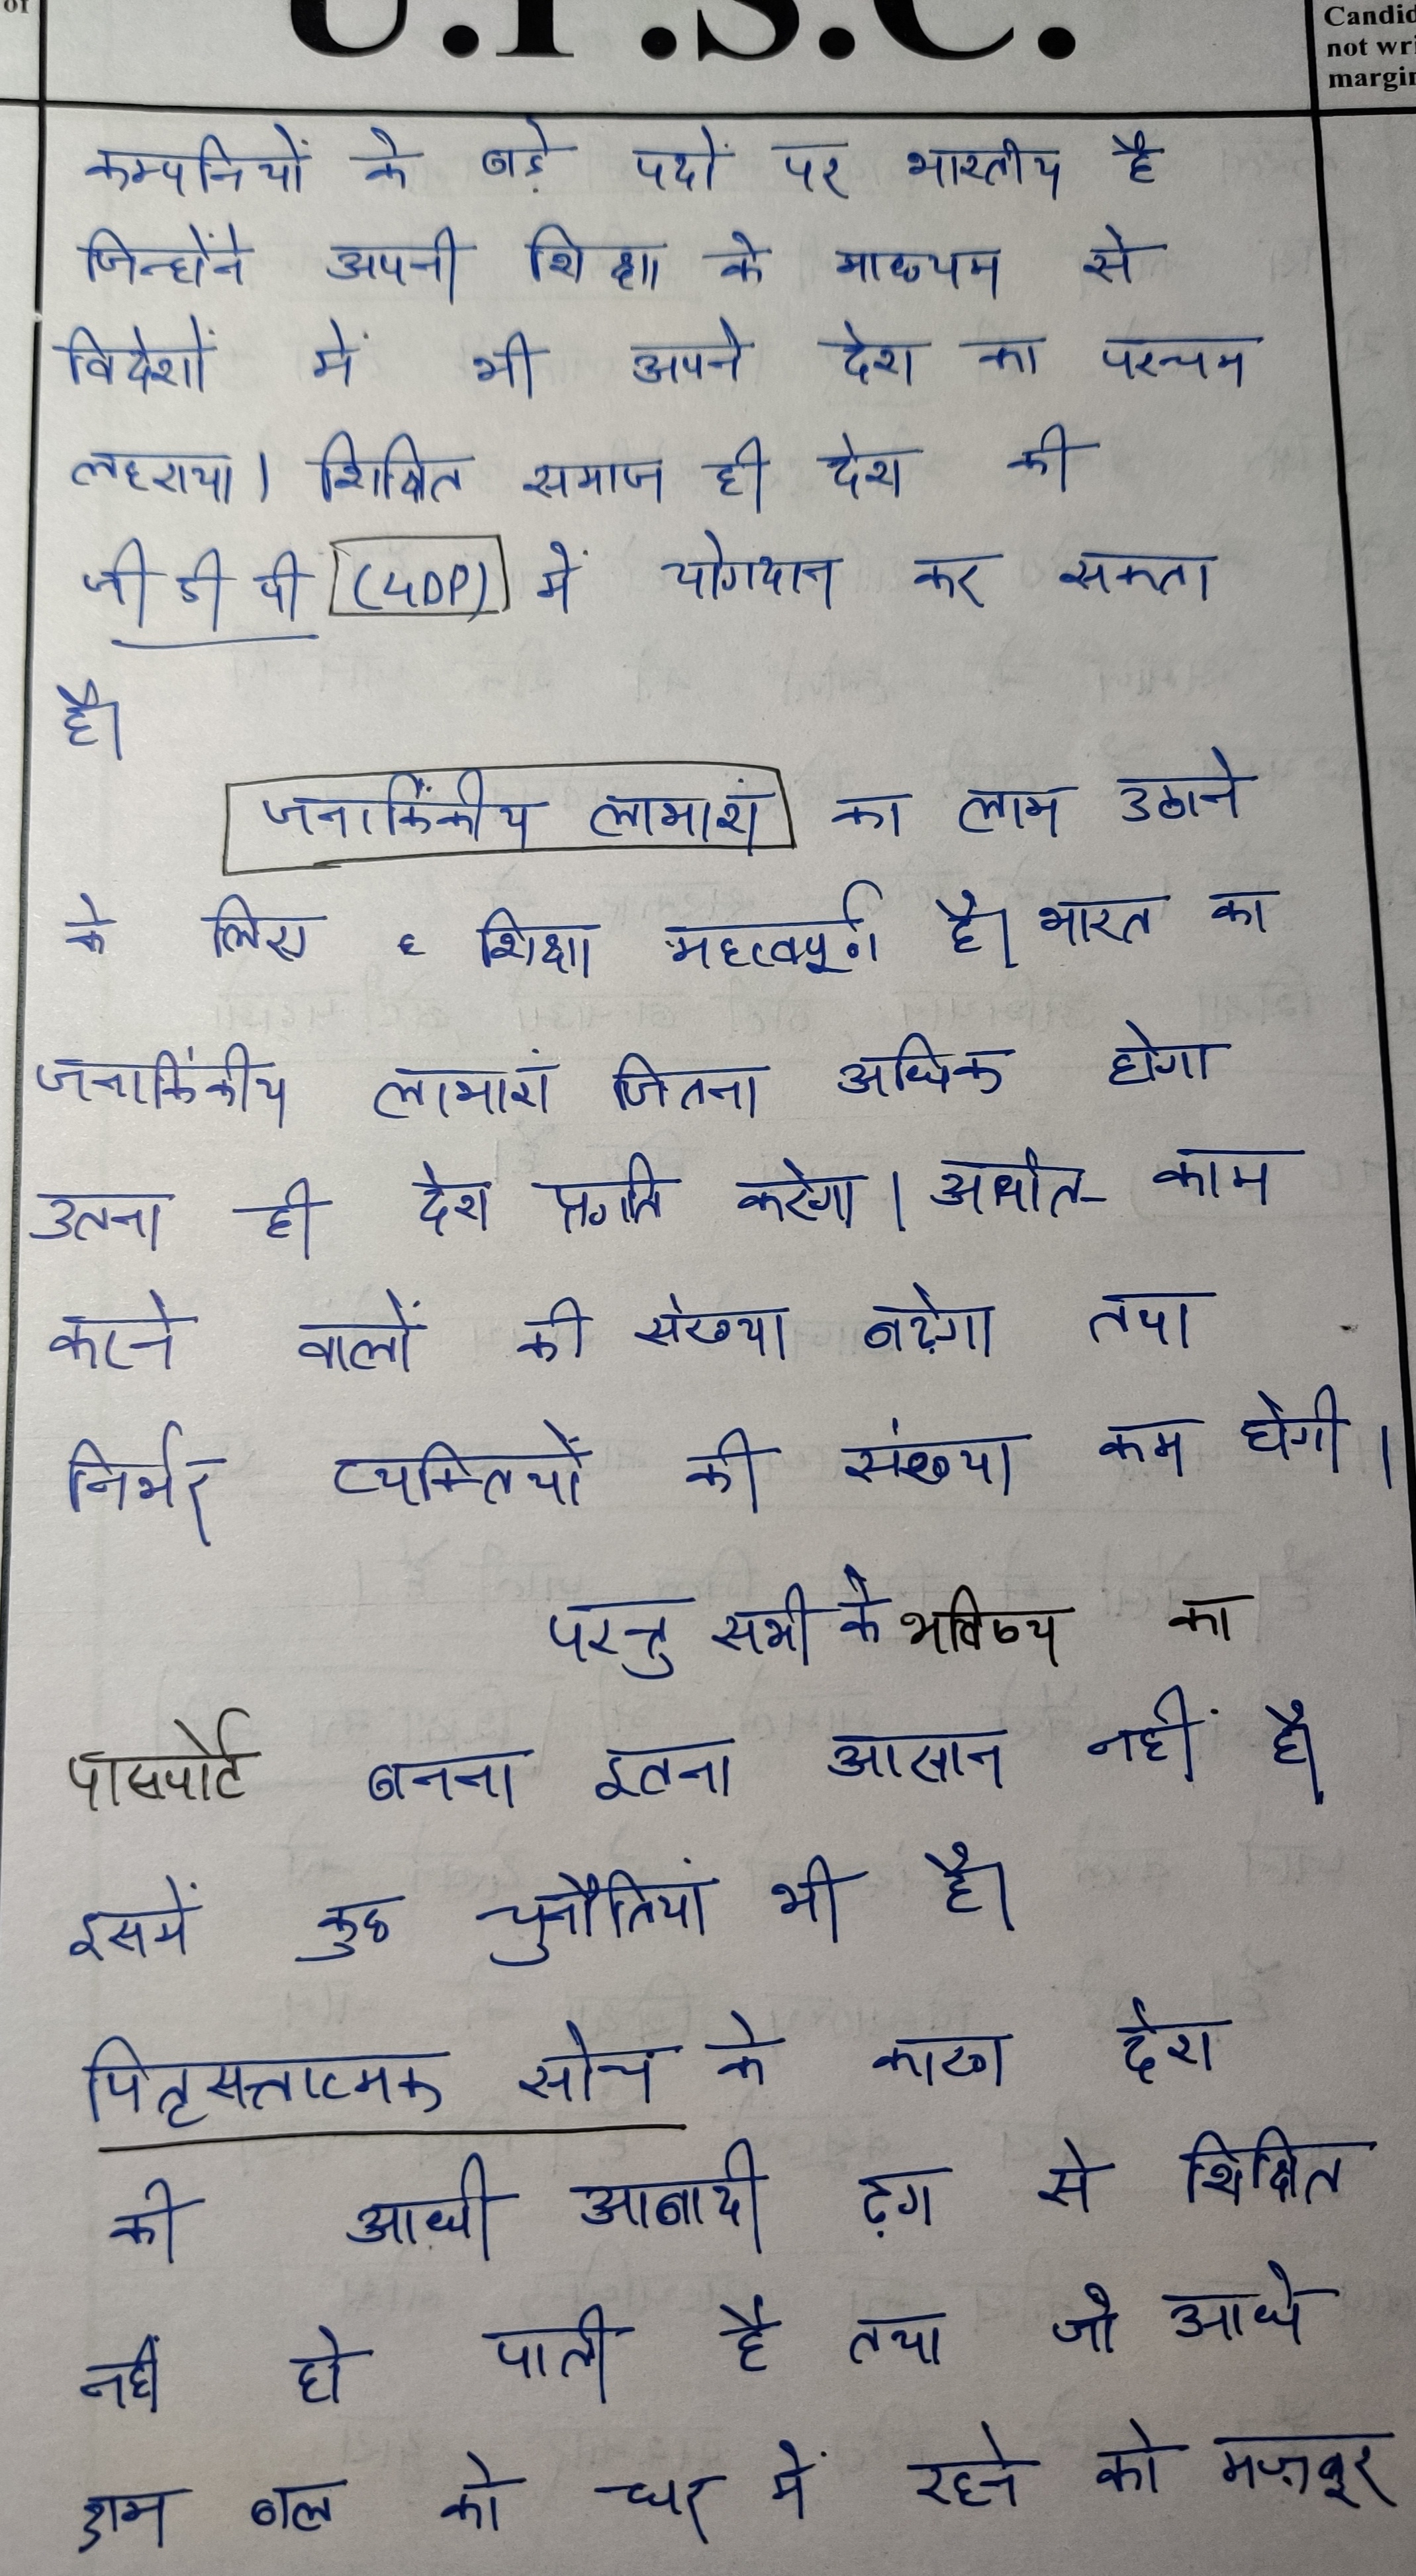 U.P.S.C.
Candid
not wri
margin
कम्पनियों के बड़े पदों पर भारतीय है
जिन्होंने अपनी शिक्षा के माध्यम से
विदेशों में भी अपने देश का परचम
लहराया। शिक्षित समाज ही देश की
जी डी पी (GDP) में योगदान कर सकता
है।
जनांकिंकीय लाभाशं का लाभ उठाने
के लिए शिक्षा महत्वपूर्ण है। भारत का
जनाकिंकीय लाभाशं जितना अधिक होगा
उतना ही देश प्रगति करेगा। अर्थात काम
करने वालों की संख्या बढ़ेगा तथा
निर्भर व्यक्तियों की संख्या कम होगी।
परन्तु सभी के भविष्य का
पासपोर्ट बनना इतना आसान नहीं है।
इसमें कुछ चुनौतियां भी है।
पितृसत्तात्मक सोच के कारण देश
की आधी आबादी ढ़ग से शिक्षित
नही हो पाती है तथा जो आधे
श्रम बल को घर में रहने को मज़बूर